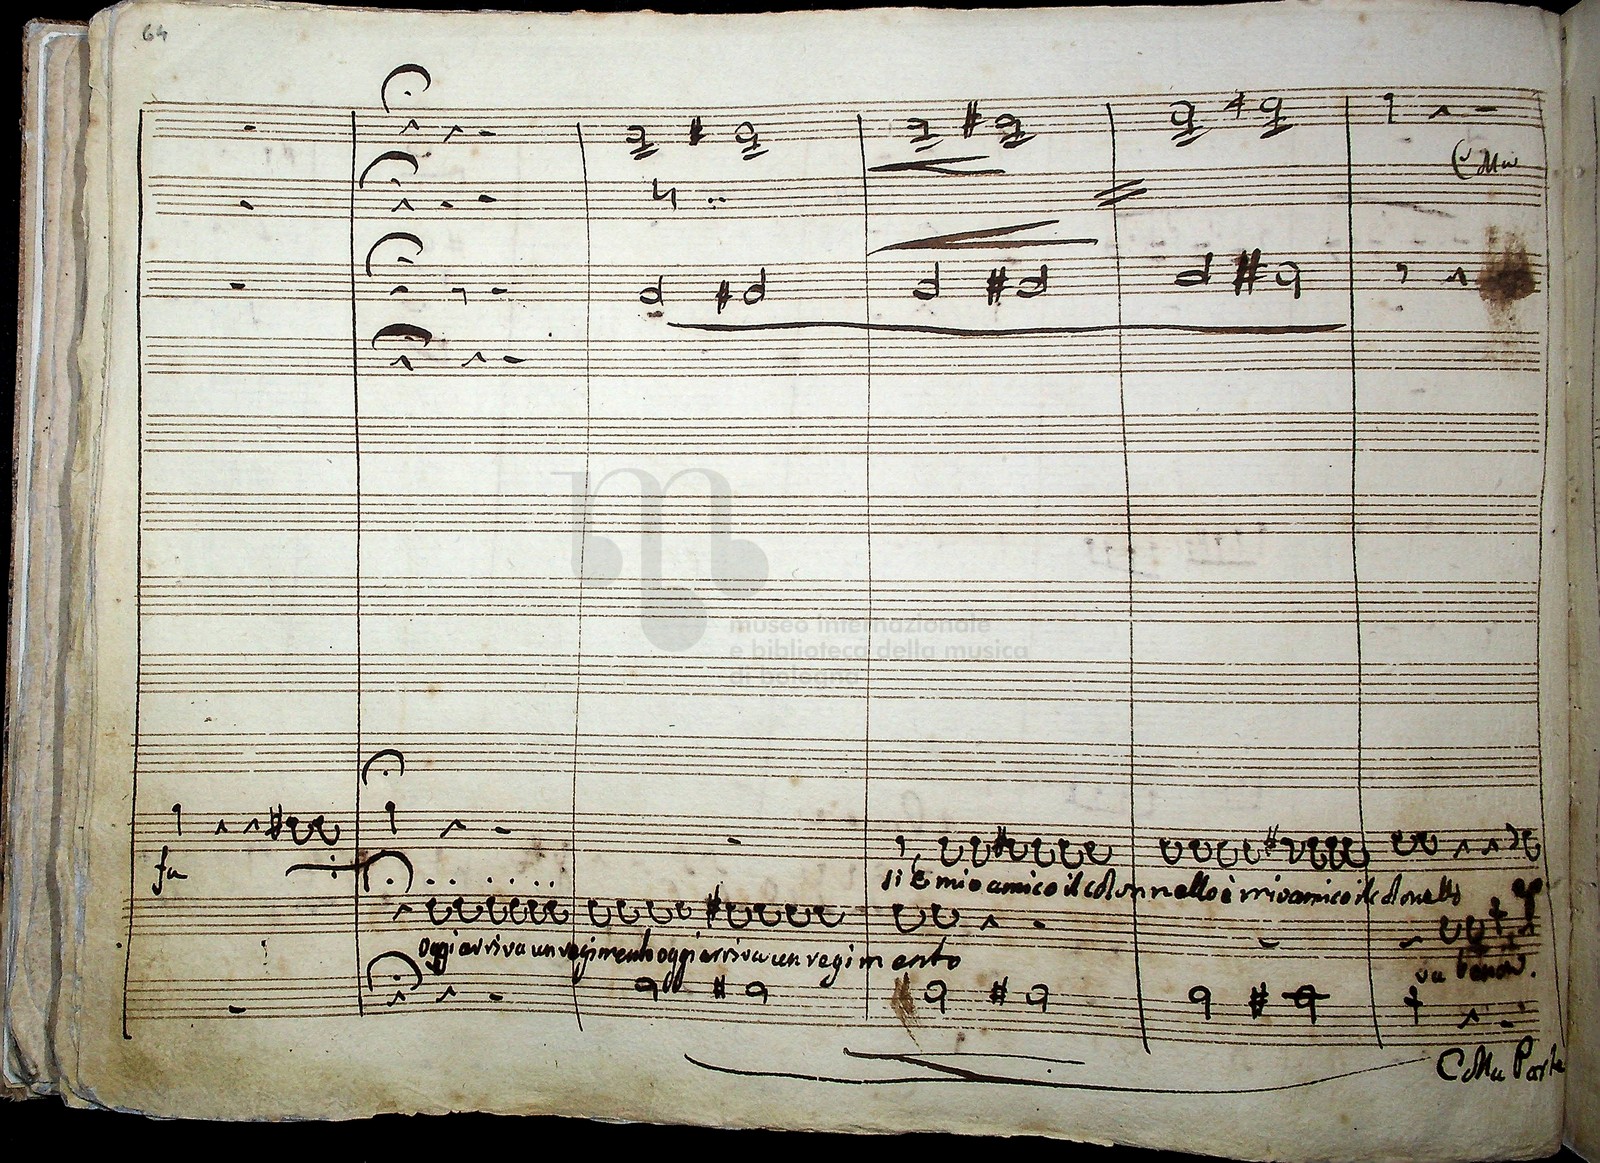 64
Colla
museo internazionale
e biblioteca della musica
di bologna
fa
si è mio amico il colonnello è mio amico il colonello
oggi arriva un regimento oggi arriva un regimento
va benon.
Colla Parte